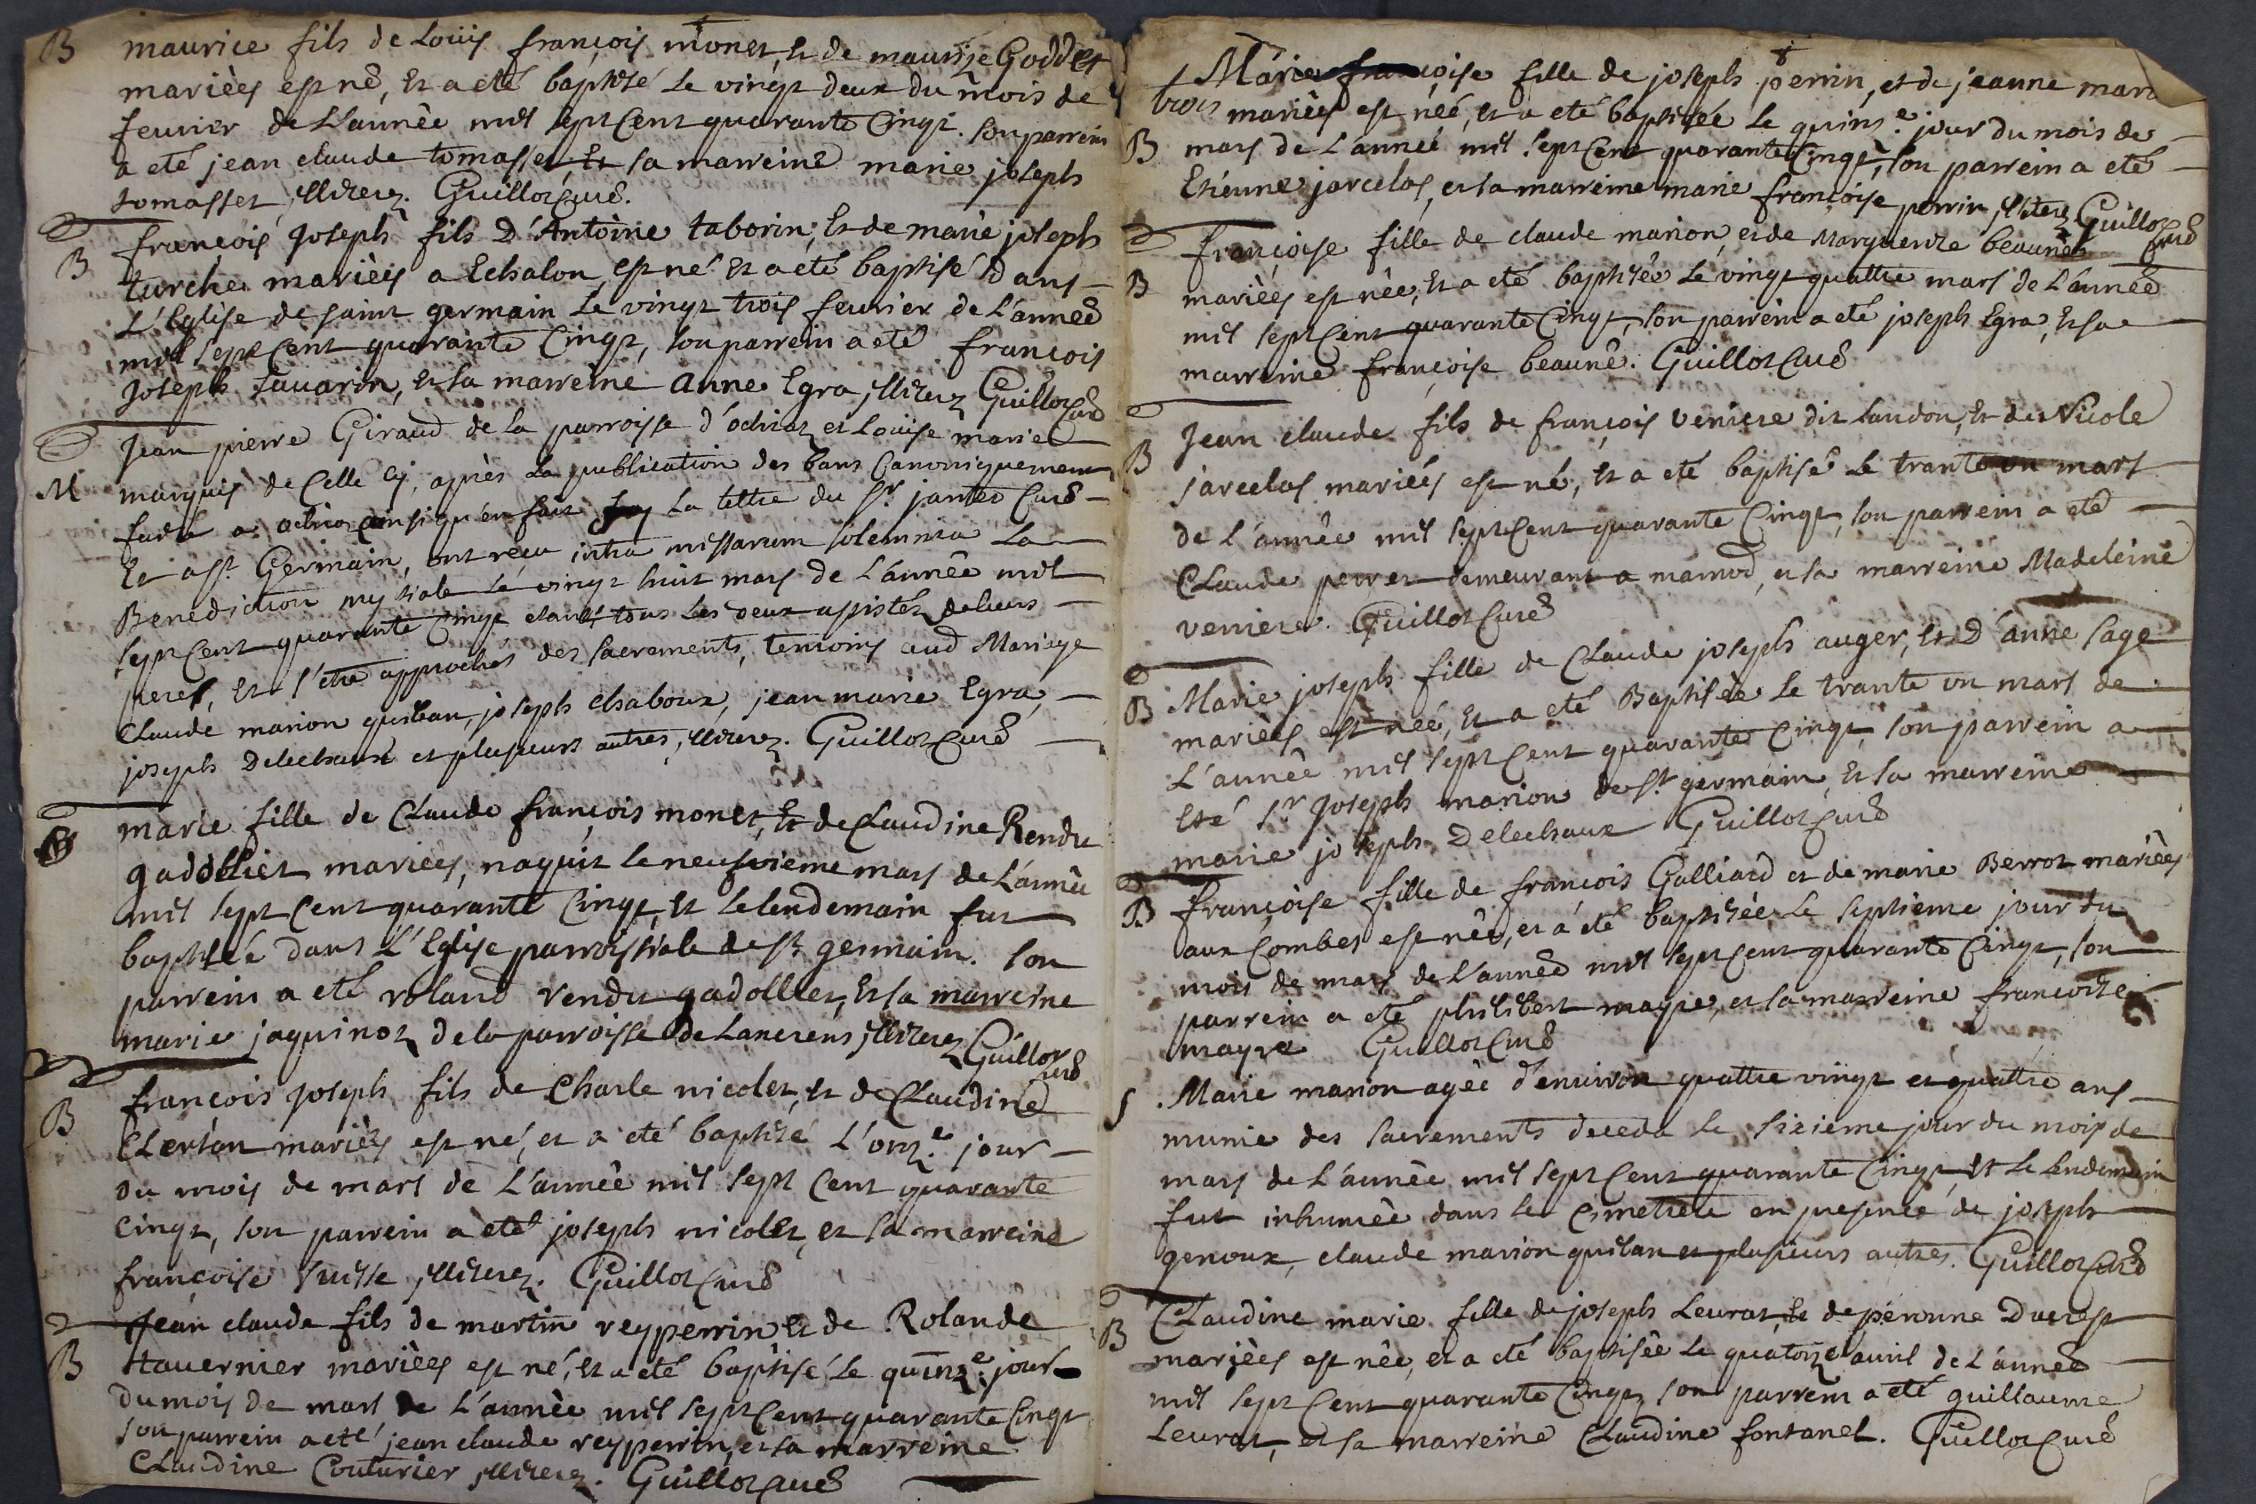 B maurice fils de Loüis françois monet, et de maurize Goddet
mariées est né, et a eté baptisé le vingt deux du mois de
feurier de L'année mil sept Cent quarante Cinqt. son parrein
a eté jean claude tomasset, et sa marreine marie joseph
tomasset, illiterez. Guillot Curé.
B françois Joseph fils D'Antoine taborin, et de marie joseph
turche mariées a Echalon, est né et a eté baptisé Dans
L'Eglise de saint germain le vingt trois feurier de L'année
mil sept Cent quarante Cinqt, son parrein a eté françois
Joseph savarin, et sa marreine anne Egra illiterez Guillot Curé
M Jean pierre Giraud de la parroisse d'ochiaz et Loüise marie
marquis de Celle cy, après La publication des bans Canoniquement
faite a ochiaz ainsi qu'en fait foy La lettre du sr. jantet Curé
Et a st. Germain, ont reçu intra missarum solemnia La
Benediction nuptiale le vingt huit mars de L'année mil
sept Cent quarante Cinqt etant tous les deux assistéz de leurs
peres, Et s'etre approchés des sacrements, temoins aud Mariage
Claude marion quilan, joseph chaboux, jean marie Egra,
joseph Delechaux et plusieurs autres, illiterez. Guillot Curé
B marie fille de Claude françois monet, et de Claudine Rendu
gadollier mariées, naquit le neufvieme mars de L'année
mil sept Cent quarante Cinqt, et le lendemain fut
baptisée dans L'Eglise parroissiale de st. germain. son
parrein a eté roland rendu gadollier, et sa marreine
marie jaquinoz de la parroisse de Lancrens, illiterez Guillot curé
B françois Joseph fils de Charle nicolet, et de Claudine
Clertan mariées est né, et a eté baptisé L'onz.e jour
du mois de mars de L'année mil sept Cent quarante
Cinqt, son parrein a eté joseph nicolet, et sa marreine
françoise suisse, illiterez. Guillot Curé
B Jean claude fils de martin reyperrin et de Rolande
tauernier mariées est né, et a eté baptisé, le quinz.e jour
du mois de mars de L'année mil sept Cent quarante Cinqt
son parrein a eté jean claude reyperrin, et sa marreine
Claudine Couturier, illiterez. Guillot curé
Marie françoise fille de joseph perrin, et de jeanne mari
trois mariées est néé, et a eté baptisée le quinz.e jour du mois de
B mars de L'année mil sept Cent quarante Cinqt, son parrein a eté
Etienne jarcelas, et sa marreine marie françoise perrin, illiterez Guillot Curé
françoise fille de claude marion, et de Marguerite beaunée
B mariées est née, et a eté baptisée le vingt quattre mars de L'année
mil sept Cent quarante Cinqt, son parrein a eté joseph Egra, et sa
marreine françoise beauné. Guillot Curé
Jean claude fils de françois verriere dit landon, et de Nicole
B jarcelas mariées est né, et a eté baptisé le trante un mars
de L'année mil sept Cent quarante Cinqt, son parrein a eté
Claude perret demeurant a mamod, et sa marreine Madeleine
verriere. Guillot Curé
B Marie joseph fille de Claude joseph auger, et D'anne sage
mariées est néé, et a eté Baptisée le trante un mars de
L'année mil sept Cent quarante Cinqt, son parrein a
Eté sr Joseph marion de st. germain, et sa marreine
marie joseph Delechaux Guillot Curé
B françoise fille de françois Galliard et de marie Berrot mariées
aux Combes est née, et a eté baptisée le septieme jour du
mois de mars de L'année mil sept Cent quarante Cinqt, son
parrein a eté philibert mayre, et sa marreine françoise
mayre Guillot Curé
S. Marie marion agée d'environ quattre vingt et quattre ans
munie des sacrements deceda le sixieme jour du mois de
mars de L'année mil sept Cent quarante Cinqt, et le lendemain
fut inhumée dans le cimetiere en presence de joseph
genoux, claude marion quilan et plusieurs autres. Guillot Curé
Claudine marie fille de joseph Leurat, et de peronne Ducrest
B mariées est née, et a eté baptisée le quatorze auril de L'année
mil sept Cent quarante Cinqt, son parrein a eté guillaume
Leurat, et sa marreine Claudine fontanel. Guillot Curé